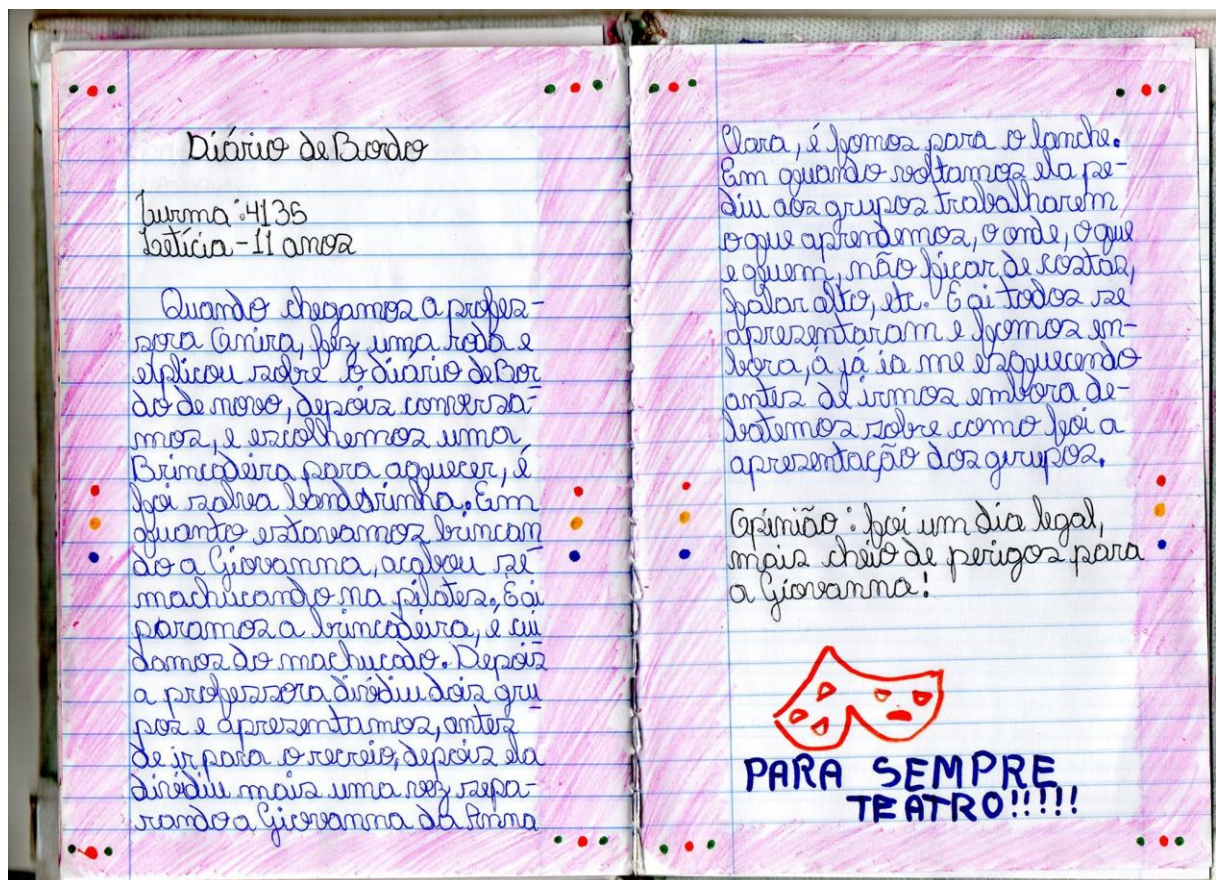 Diário de Bordo
Turma: 4135
Letícia - 11 anos
Quando chegamos a profes-
sora Amira, fez uma roda e
explicou sobre o diário de Bor
do de novo, depois conversa-
mos, e escolhemos uma
Brincadeira para aquecer, é
foi salva bandeirinha. Em
quanto estavamos brincan
do a Giovanna, acabou se
machucando na pilates, E ai
paramos a brincadeira, e cui
damos do machucado. Depois
a professora dividiu dois gru
pos e apresentamos, antes
de ir para o recreio, depois ela
dividiu mais uma vez sepa-
rando a Giovanna da Anna
Clara, é fomos para o lanche.
Em quando voltamos ela pe-
diu aos grupos trabalharem
o que aprendemos, o onde, o que
e quem, não ficar de costas,
falar alto, etc. E ai todos se
apresentaram e fomos en-
bora, á já ia me esquecendo
antes de irmos embora de-
batemos sobre como foi a
apresentação dos grupos.
Opinião: foi um dia legal,
mais cheio de perigos para
a Giovanna!
PARA SEMPRE
TEATRO!!!!!